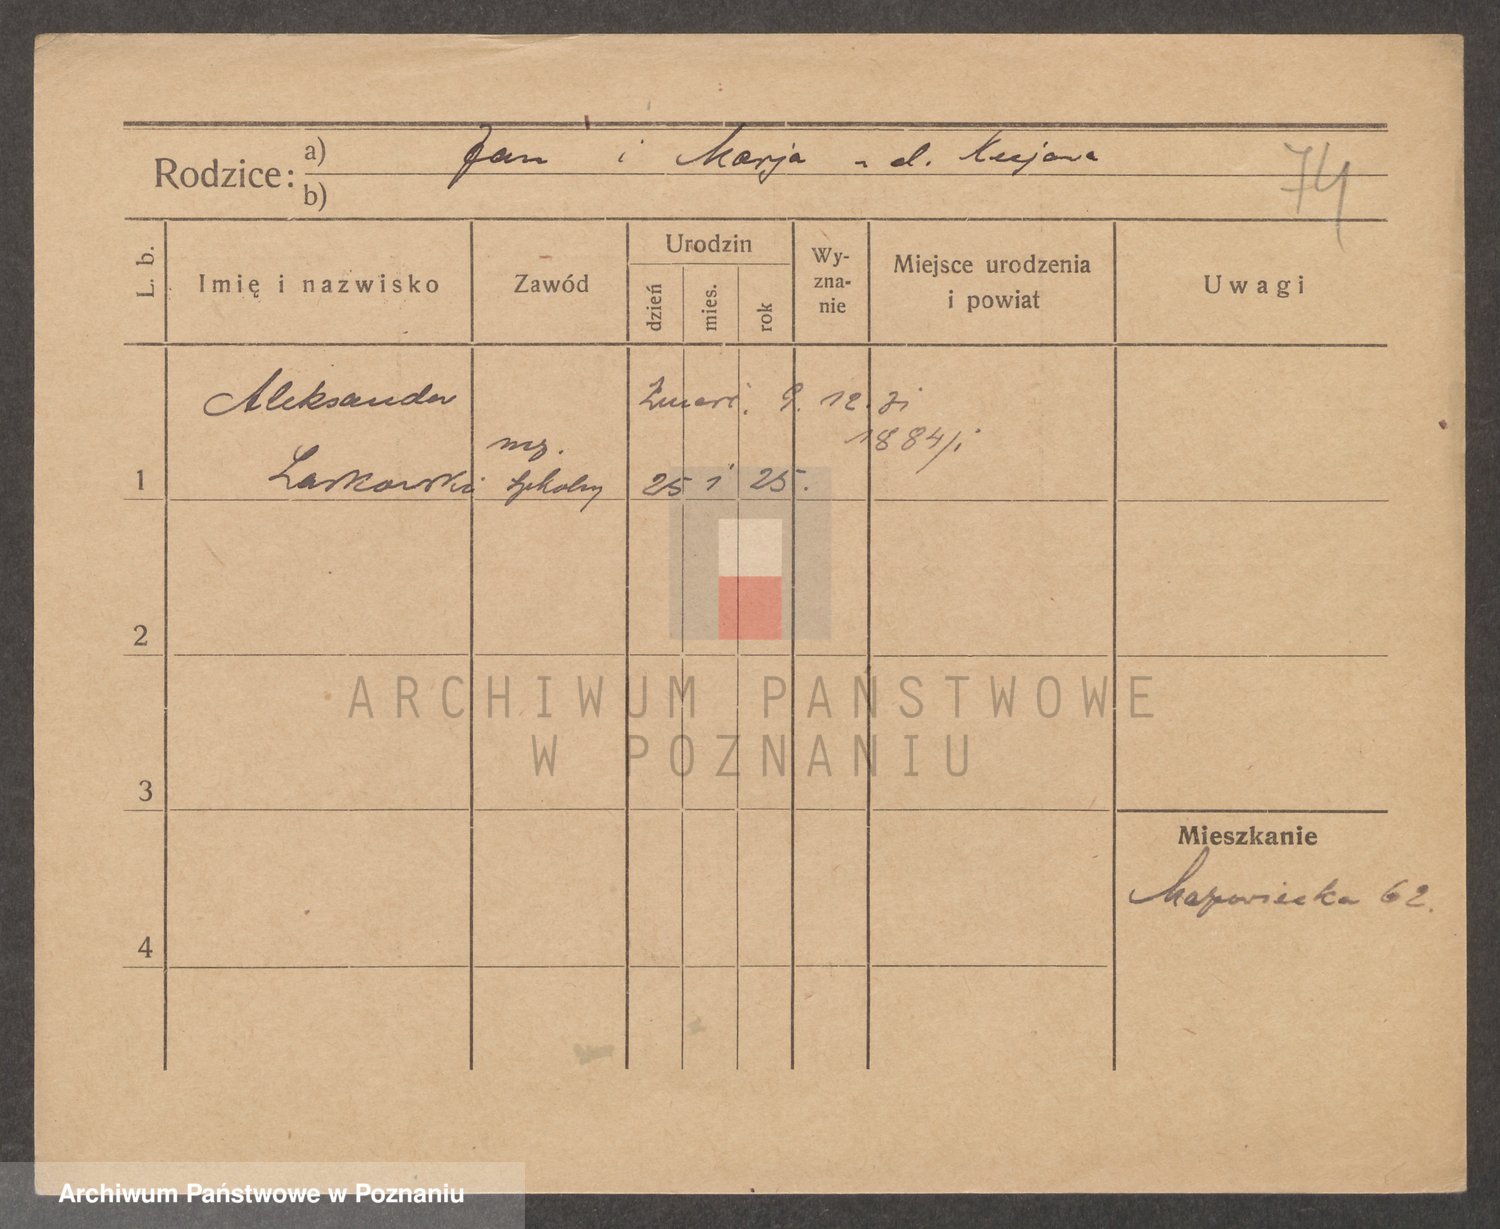 Rodzice:
a) Jan i Marja z d. Kujawa
b)
74
L. b.
Imię i nazwisko
Zawód
Urodzin
dzień
mies.
rok
Wy-
zna-
nie
Miejsce urodzenia
i powiat
Uwagi
Aleksander
Zmarł. 9. 12. 31
1884/i
mż.
1 Laskowski szkolny 25 1 25.
2
3
4
Mieszkanie
Mazowiecka 62.
ARCHIWUM PAŃSTWOWE
W POZNANIU
Archiwum Państwowe w Poznaniu